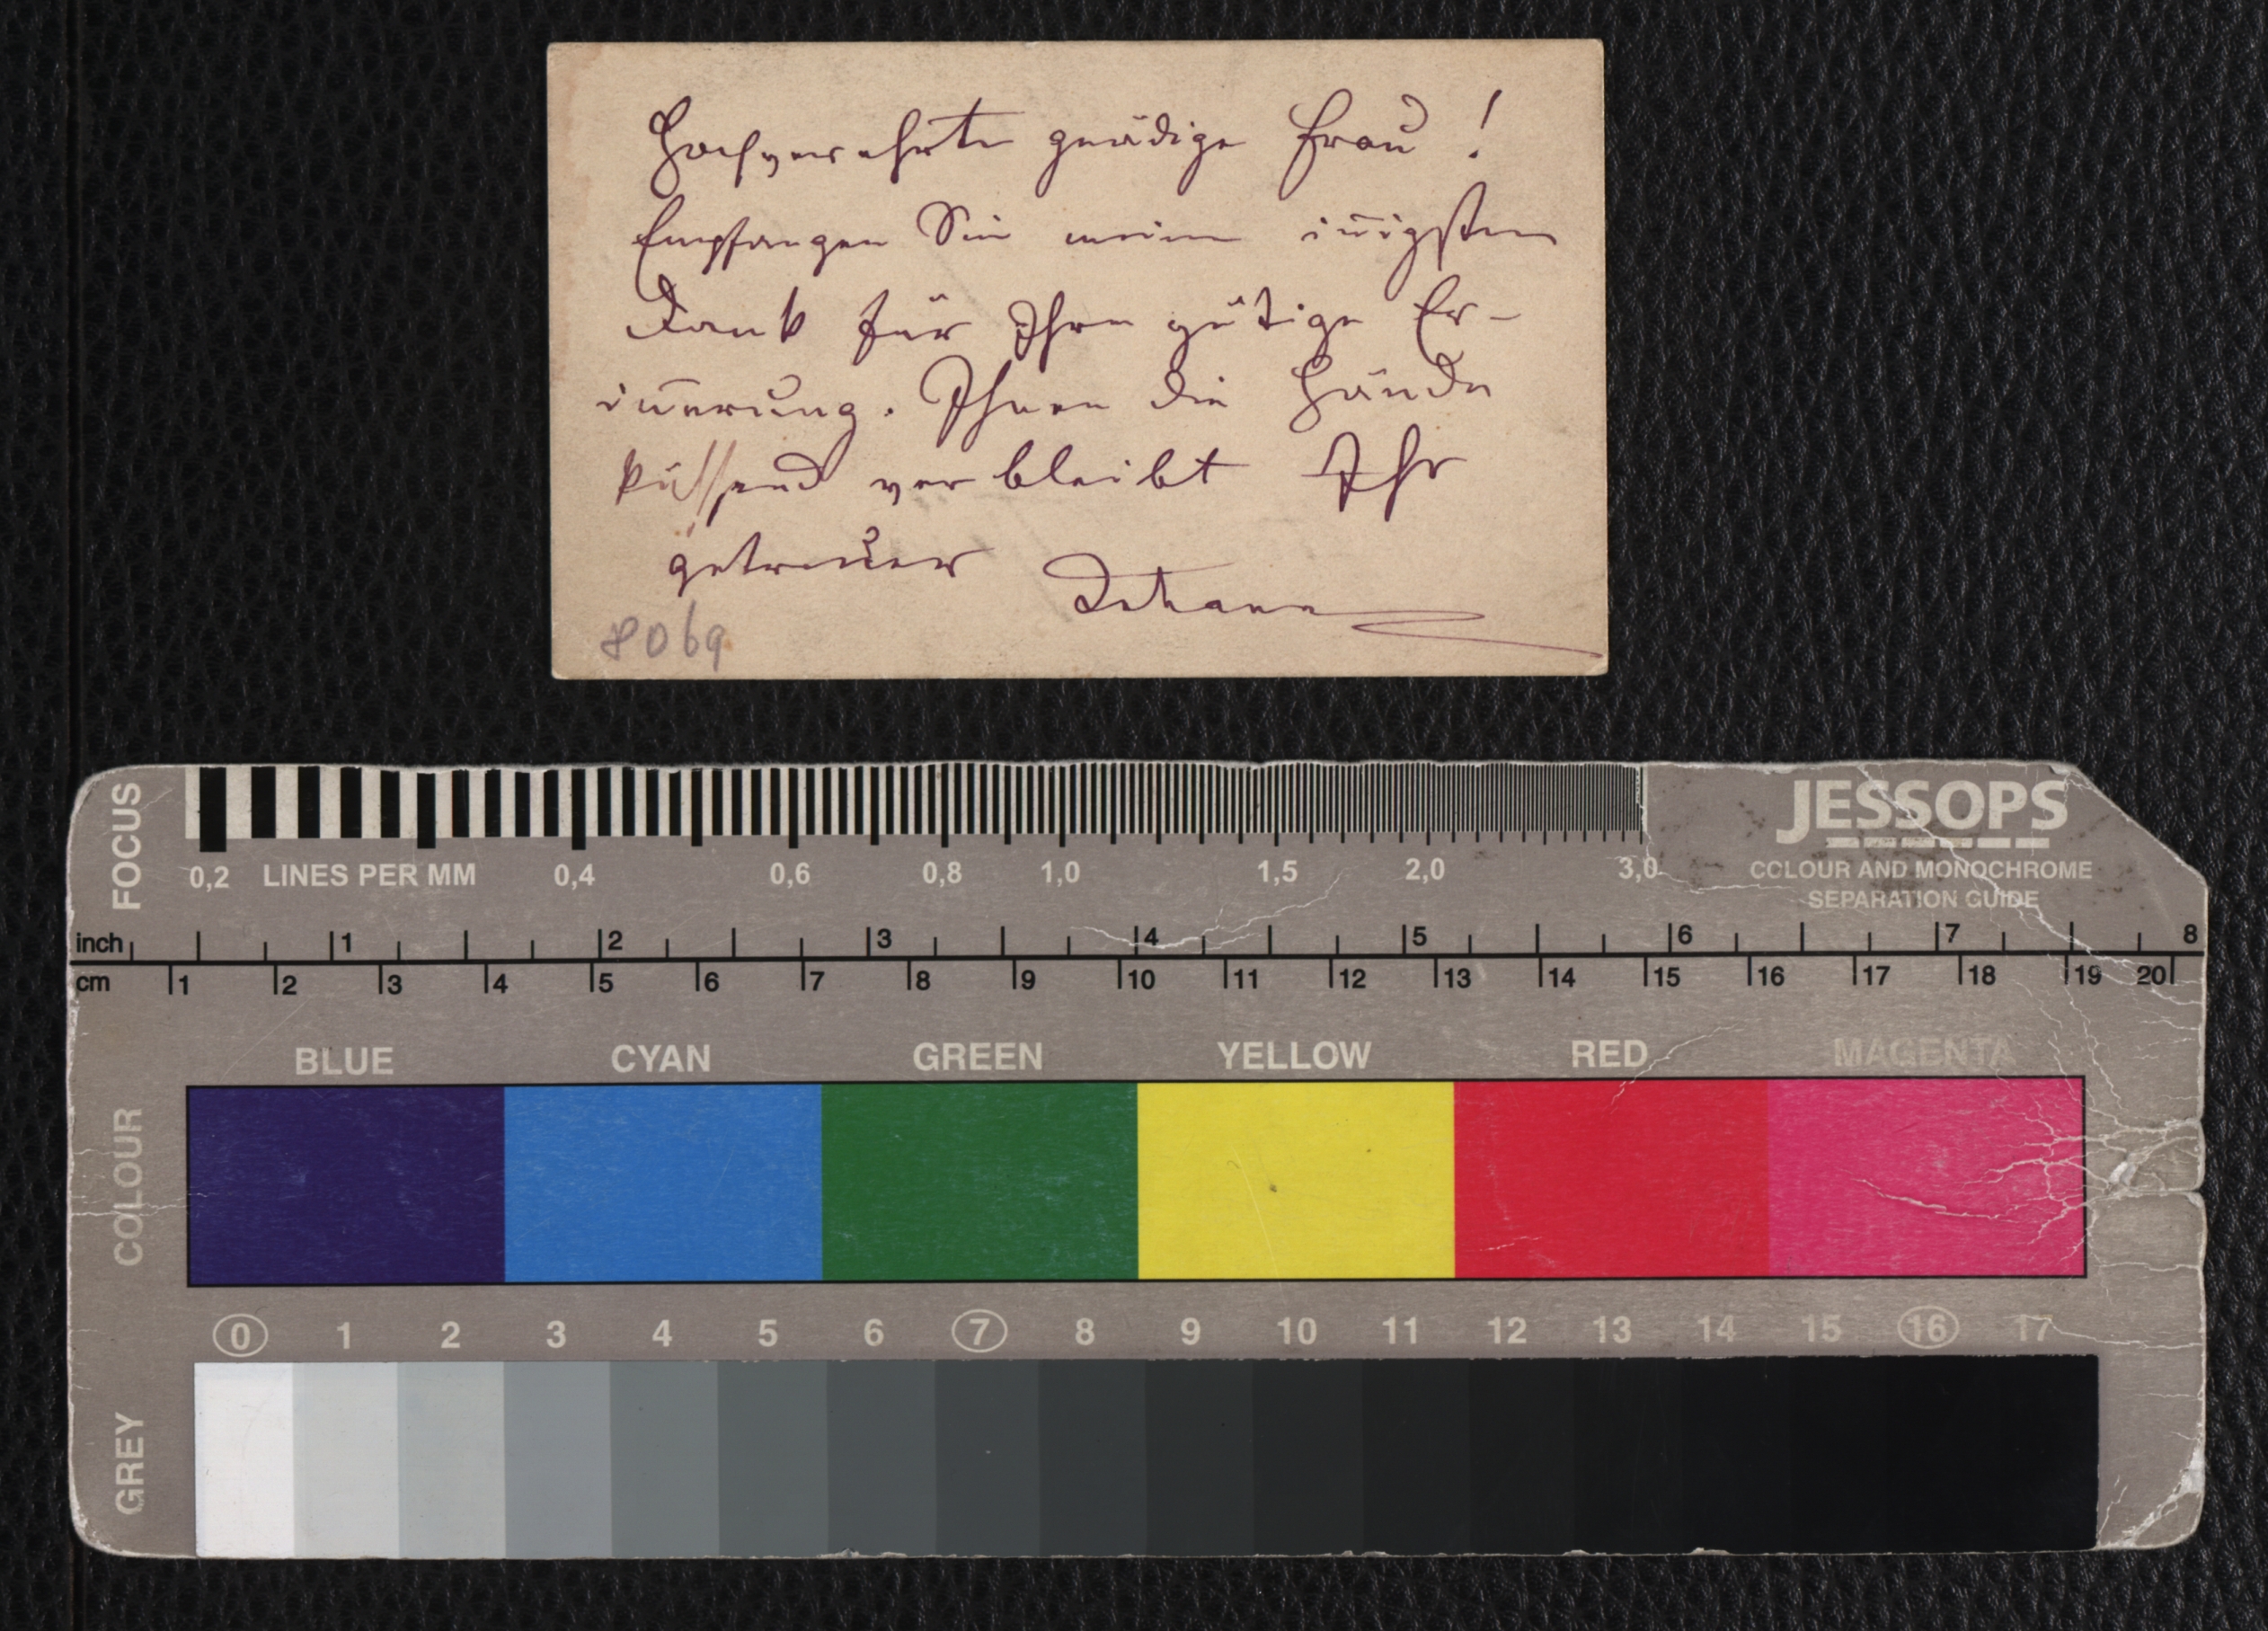 Hochverehrte gnädige Frau!
Empfangen Sie meinen iñigsten
Dank für Ihre gütige Er-
iñerung. Ihnen die Hände
küssend verbleibt Ihr
getreuer Johann
8069
FOCUS
0,2 LINES PER MM 0,4 0,6 0,8 1,0 1,5 2,0 3,0
JESSOPS
COLOUR AND MONOCHROME
SEPARATION GUIDE
inch 1 2 3 4 5 6 7 8
cm 1 2 3 4 5 6 7 8 9 10 11 12 13 14 15 16 17 18 19 20
COLOUR
BLUE CYAN GREEN YELLOW RED MAGENTA
0 1 2 3 4 5 6 7 8 9 10 11 12 13 14 15 16 17
GREY